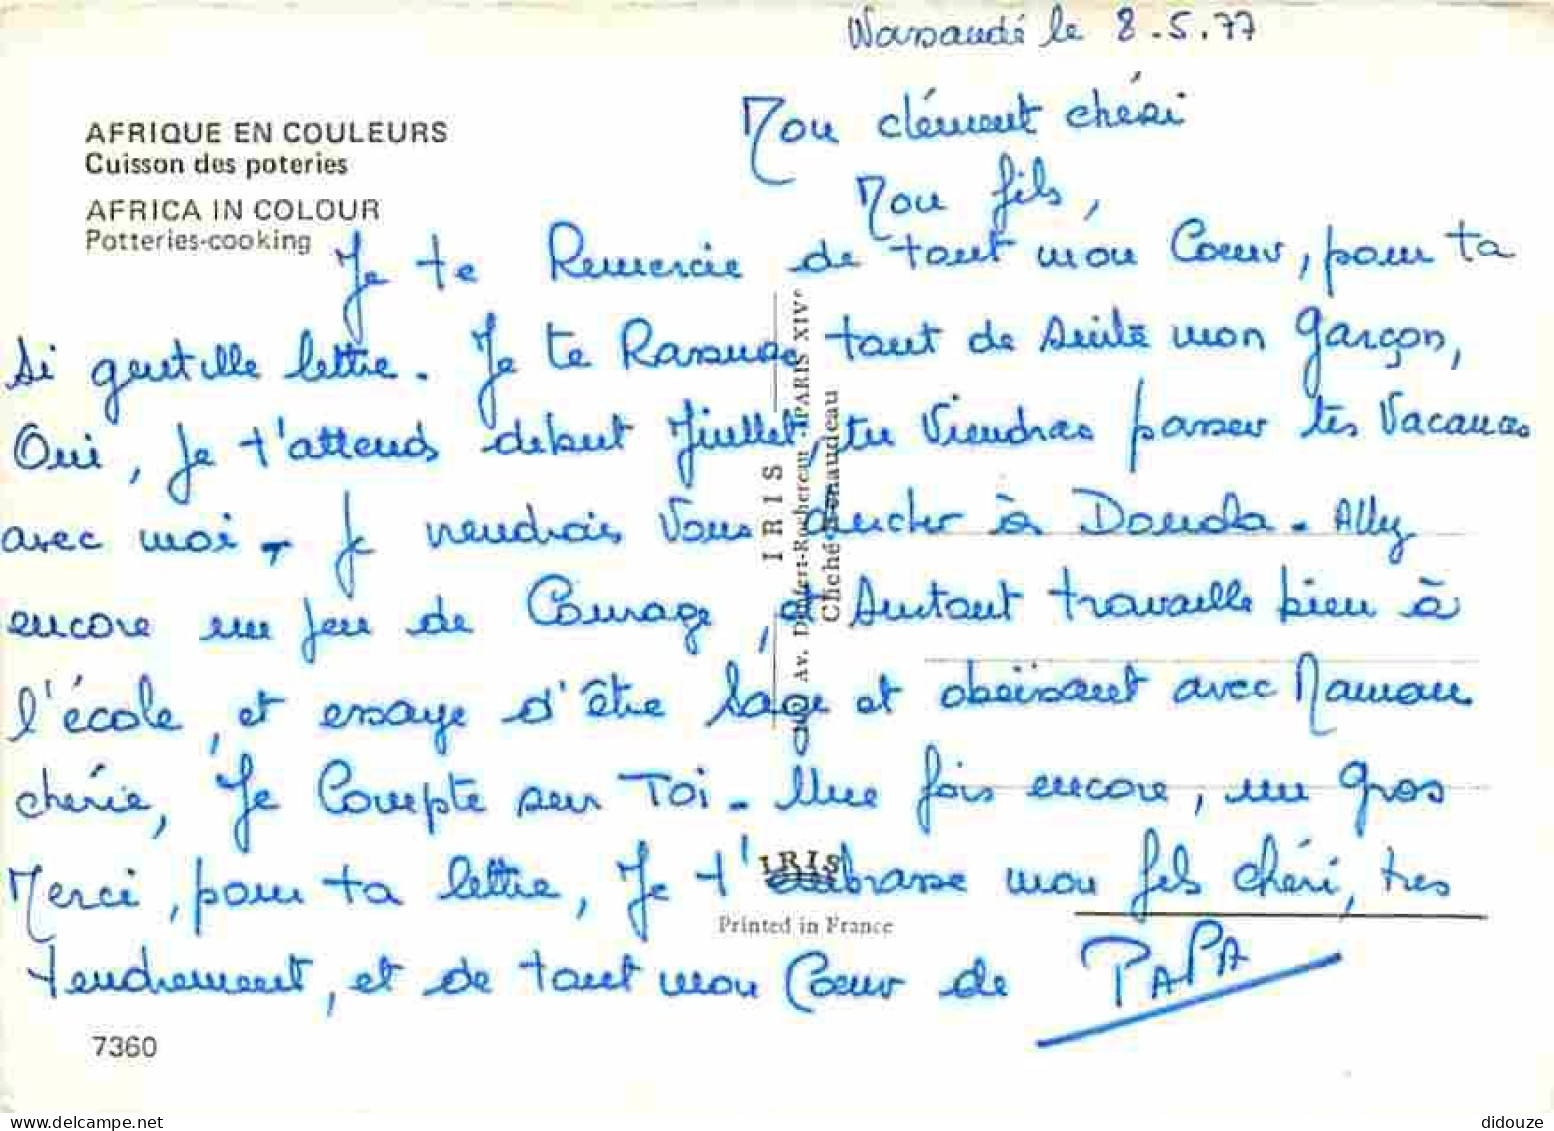 Waraandé le 8.5.77
Mon clément chéri
Mon fils,
AFRIQUE EN COULEURS
Cuisson des poteries
AFRICA IN COLOUR
Potteries-cooking
Je te Remercie de tout mon Coeur, pour ta
si gentille lettre. Je te Rassure tout de suite mon Garçon,
Oui, je t'attends debut Juillet, tu Viendras passer tes Vacances
avec moi - Je viendrais Vous chercher à Douala. Allez
encore un peu de Courage, et surtout travaille bien à
l'école, et essaye d'être sage et obéissant avec Maman
chérie, Je Compte sur Toi - Une fois encore, un gros
Merci, pour ta lettre, Je t'embrasse mon fils chéri, tres
tendrement, et de tout mon Coeur de PAPA
IRIS
Av. Denfert-Rochereau - PARIS XIVe
Cliché Renaudeau
IRIS
Printed in France
7360
didouze